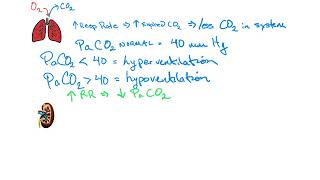 O₂ CO₂
↑ Resp Rate → ↑ Expired CO₂ ⇒ less CO₂ in system
PaCO₂ NORMAL = 40 mm Hg
PaCO₂ < 40 = hyperventilation
PaCO₂ > 40 = hypoventilation
↑ RR ⇒ ↓ PaCO₂